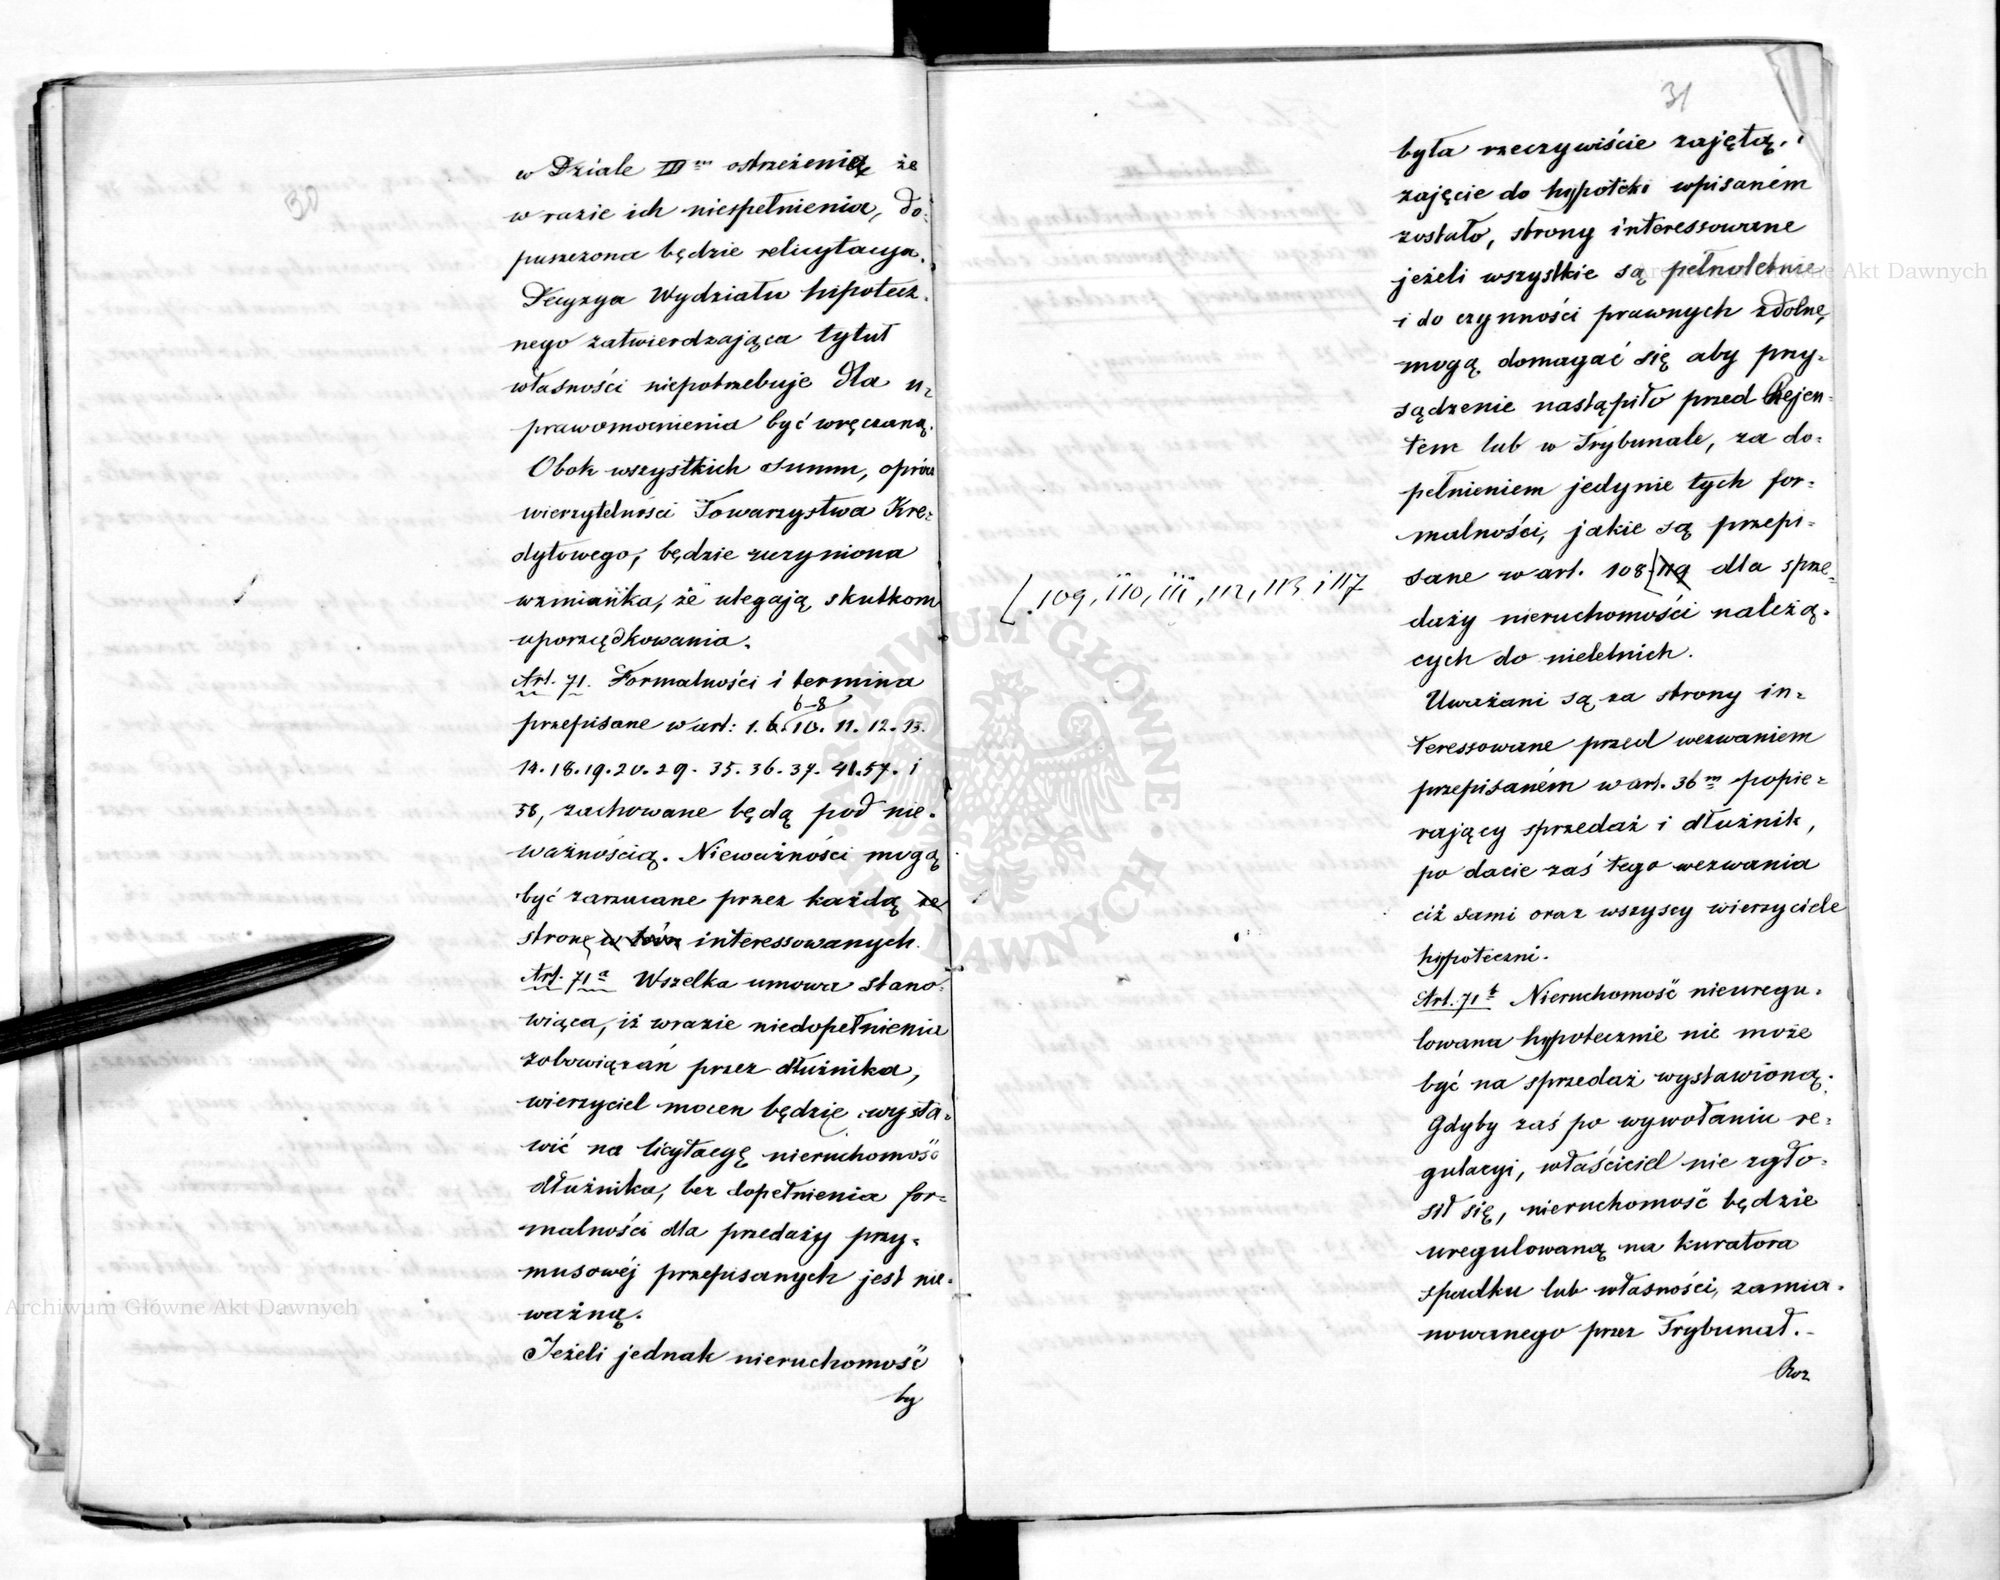 30
w Dziale III<sup>m</sup> ostrzeżenie że
w razie ich niespełnienia, do-
puszczona będzie relicytacya.
Decyzya Wydziału hipotecz-
nego zatwierdzająca tytuł
własności niepotrzebuje dla u-
prawomocnienia być wręczaną.
Obok wszystkich summ, oprócz
wierzytelności Towarzystwa Kre-
dytowego, będzie uczyniona
wzmianka, że ulegają skutkom
uporządkowania.
Art. 71. Formalności i termina
6-8
przepisane w art: 1. 6. 10. 11. 12. 13.
14. 18. 19. 20. 29. 35. 36. 37. 41. 57. i
58, zachowane będą pod nie-
ważnością. Nieważności mogą
być zarzucane przez każdą ze
stronę interessowanych.
Art. 71<sup>a</sup> Wszelka umowa stano-
wiąca, iż w razie niedopełnienia
zobowiązań przez dłużnika,
wierzyciel mocen będzie wysta-
wić na licytacyę nieruchomość
dłużnika, bez dopełnienia for-
malności dla przedaży przy-
musowéj przepisanych jest nie-
ważną.
Jeżeli jednak nieruchomość
by
31
była rzeczywiście zajętą, i
zajęcie do hypoteki wpisaném
zostało, strony interessowane
jeżeli wszystkie są pełnoletnie
i do czynności prawnych zdolne,
mogą domagać się aby przy-
sądzenie nastąpiło przed Rejen-
tem lub w Trybunale, za do-
pełnieniem jedynie tych for-
malności, jakie są przepi-
sane w art. 108 119 dla sprze-
[109, 110, 111, 112, 113 i 117
daży nieruchomości należą-
cych do nieletnich.
Uważani są za strony in-
teressowane przed wezwaniem
przepisaném w art. 36<sup>m</sup> popie-
rający sprzedaż i dłużnik,
po dacie zaś tego wezwania
ciż sami oraz wszyscy wierzyciele
hypoteczni.
Art. 71<sup>b</sup> Nieruchomość nieuregu-
lowana hypotecznie nie może
być na sprzedaż wystawioną.
Gdyby zaś po wywołaniu re-
gulacyi, właściciel nie zgło-
sił się, nieruchomość będzie
uregulowaną na kuratora
spadku lub własności, zamia-
nowanego przez Trybunał.-
Roz
Archiwum Główne Akt Dawnych
Archiwum Główne Akt Dawnych
ARCHIWUM GŁÓWNE · AKT DAWNYCH ·